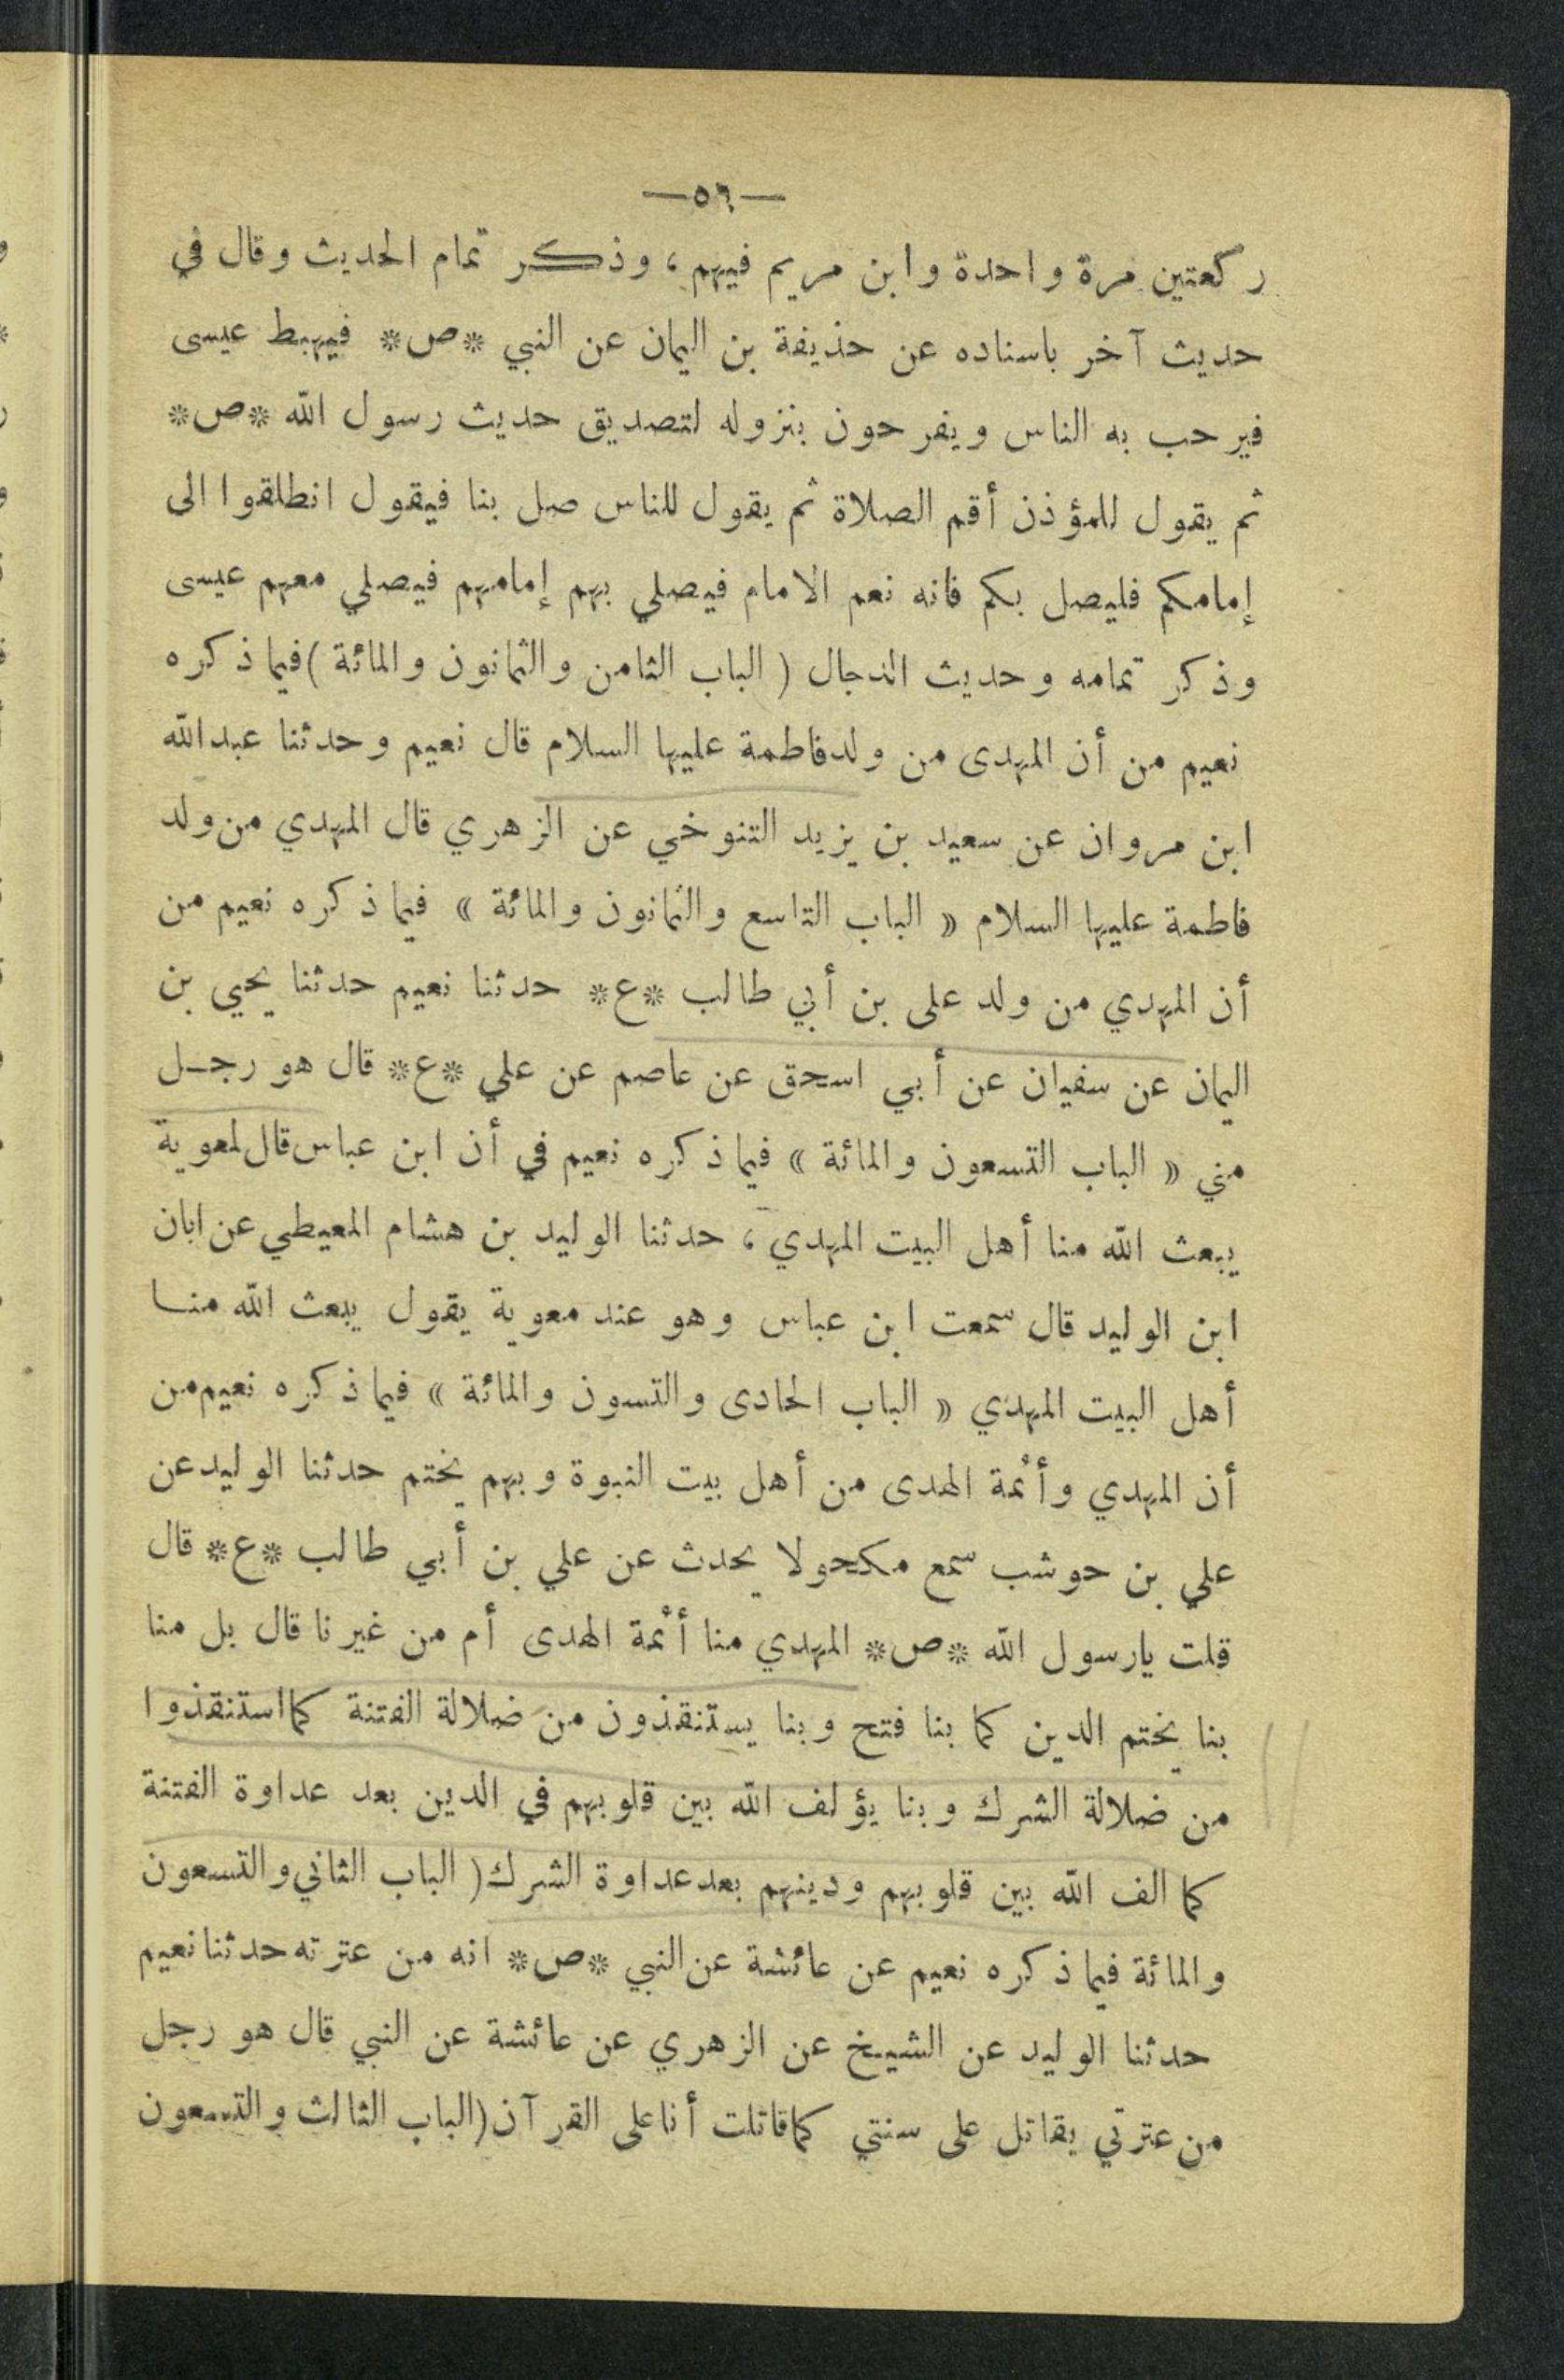 —٥٦—
ركعتين مرة واحدة وابن مريم فيهم، وذكر تمام الحديث وقال في
حديث آخر باسناده عن حذيفة بن اليمان عن النبي *ص* فيهبط عيسى
فيرحب به الناس ويفرحون بنزوله لتصديق حديث رسول الله *ص*
ثم يقول للمؤذن أقم الصلاة ثم يقول للناس صل بنا فيقول انطلقوا الى
إمامكم فليصل بكم فانه نعم الامام فيصلي بهم إمامهم فيصلي معهم عيسى
وذكر تمامه وحديث الدجال ( الباب الثامن والثمانون والمائة ) فيما ذكره
نعيم من أن المهدى من ولد فاطمة عليها السلام قال نعيم وحدثنا عبدالله
ابن مروان عن سعيد بن يزيد التنوخي عن الزهري قال المهدي من ولد
فاطمة عليها السلام « الباب التاسع والثمانون والمائة » فيما ذكره نعيم من
أن المهدي من ولد على بن أبي طالب *ع* حدثنا نعيم حدثنا يحيي بن
اليمان عن سفيان عن أبي اسحق عن عاصم عن علي *ع* قال هو رجـل
مني « الباب التسعون والمائة » فيما ذكره نعيم في أن ابن عباس قال لمعوية
يبعث الله منا أهل البيت المهدي، حدثنا الوليد بن هشام المعيطي عن ابان
ابن الوليد قال سمعت ابن عباس وهو عند معوية يقول يبعث الله منـا
أهل البيت المهدي « الباب الحادى والتسون والمائة » فيما ذكره نعيم من
أن المهدي وأئمة الهدى من أهل بيت النبوة وبهم يختم حدثنا الوليد عن
علي بن حوشب سمع مكحولا يحدث عن علي بن أبي طالب *ع* قال
قلت يارسول الله *ص* المهدي منا أئمة الهدى أم من غيرنا قال بل منا
بنا يختم الدين كما بنا فتح وبنا يستنقذون من ضلالة الفتنة كما استنقذوا
من ضلالة الشرك وبنا يؤلف الله بين قلوبهم في الدين بعد عداوة الفتنة
كما الف الله بين قلوبهم ودينهم بعد عداوة الشرك ( الباب الثاني والتسعون
والمائة فيما ذكره نعيم عن عائشة عن النبي *ص* انه من عترته حدثنا نعيم
حدثنا الوليد عن الشيخ عن الزهري عن عائشة عن النبي قال هو رجل
من عترتي يقاتل على سنتي كما قاتلت أنا على القرآن ( الباب الثالث والتسعون